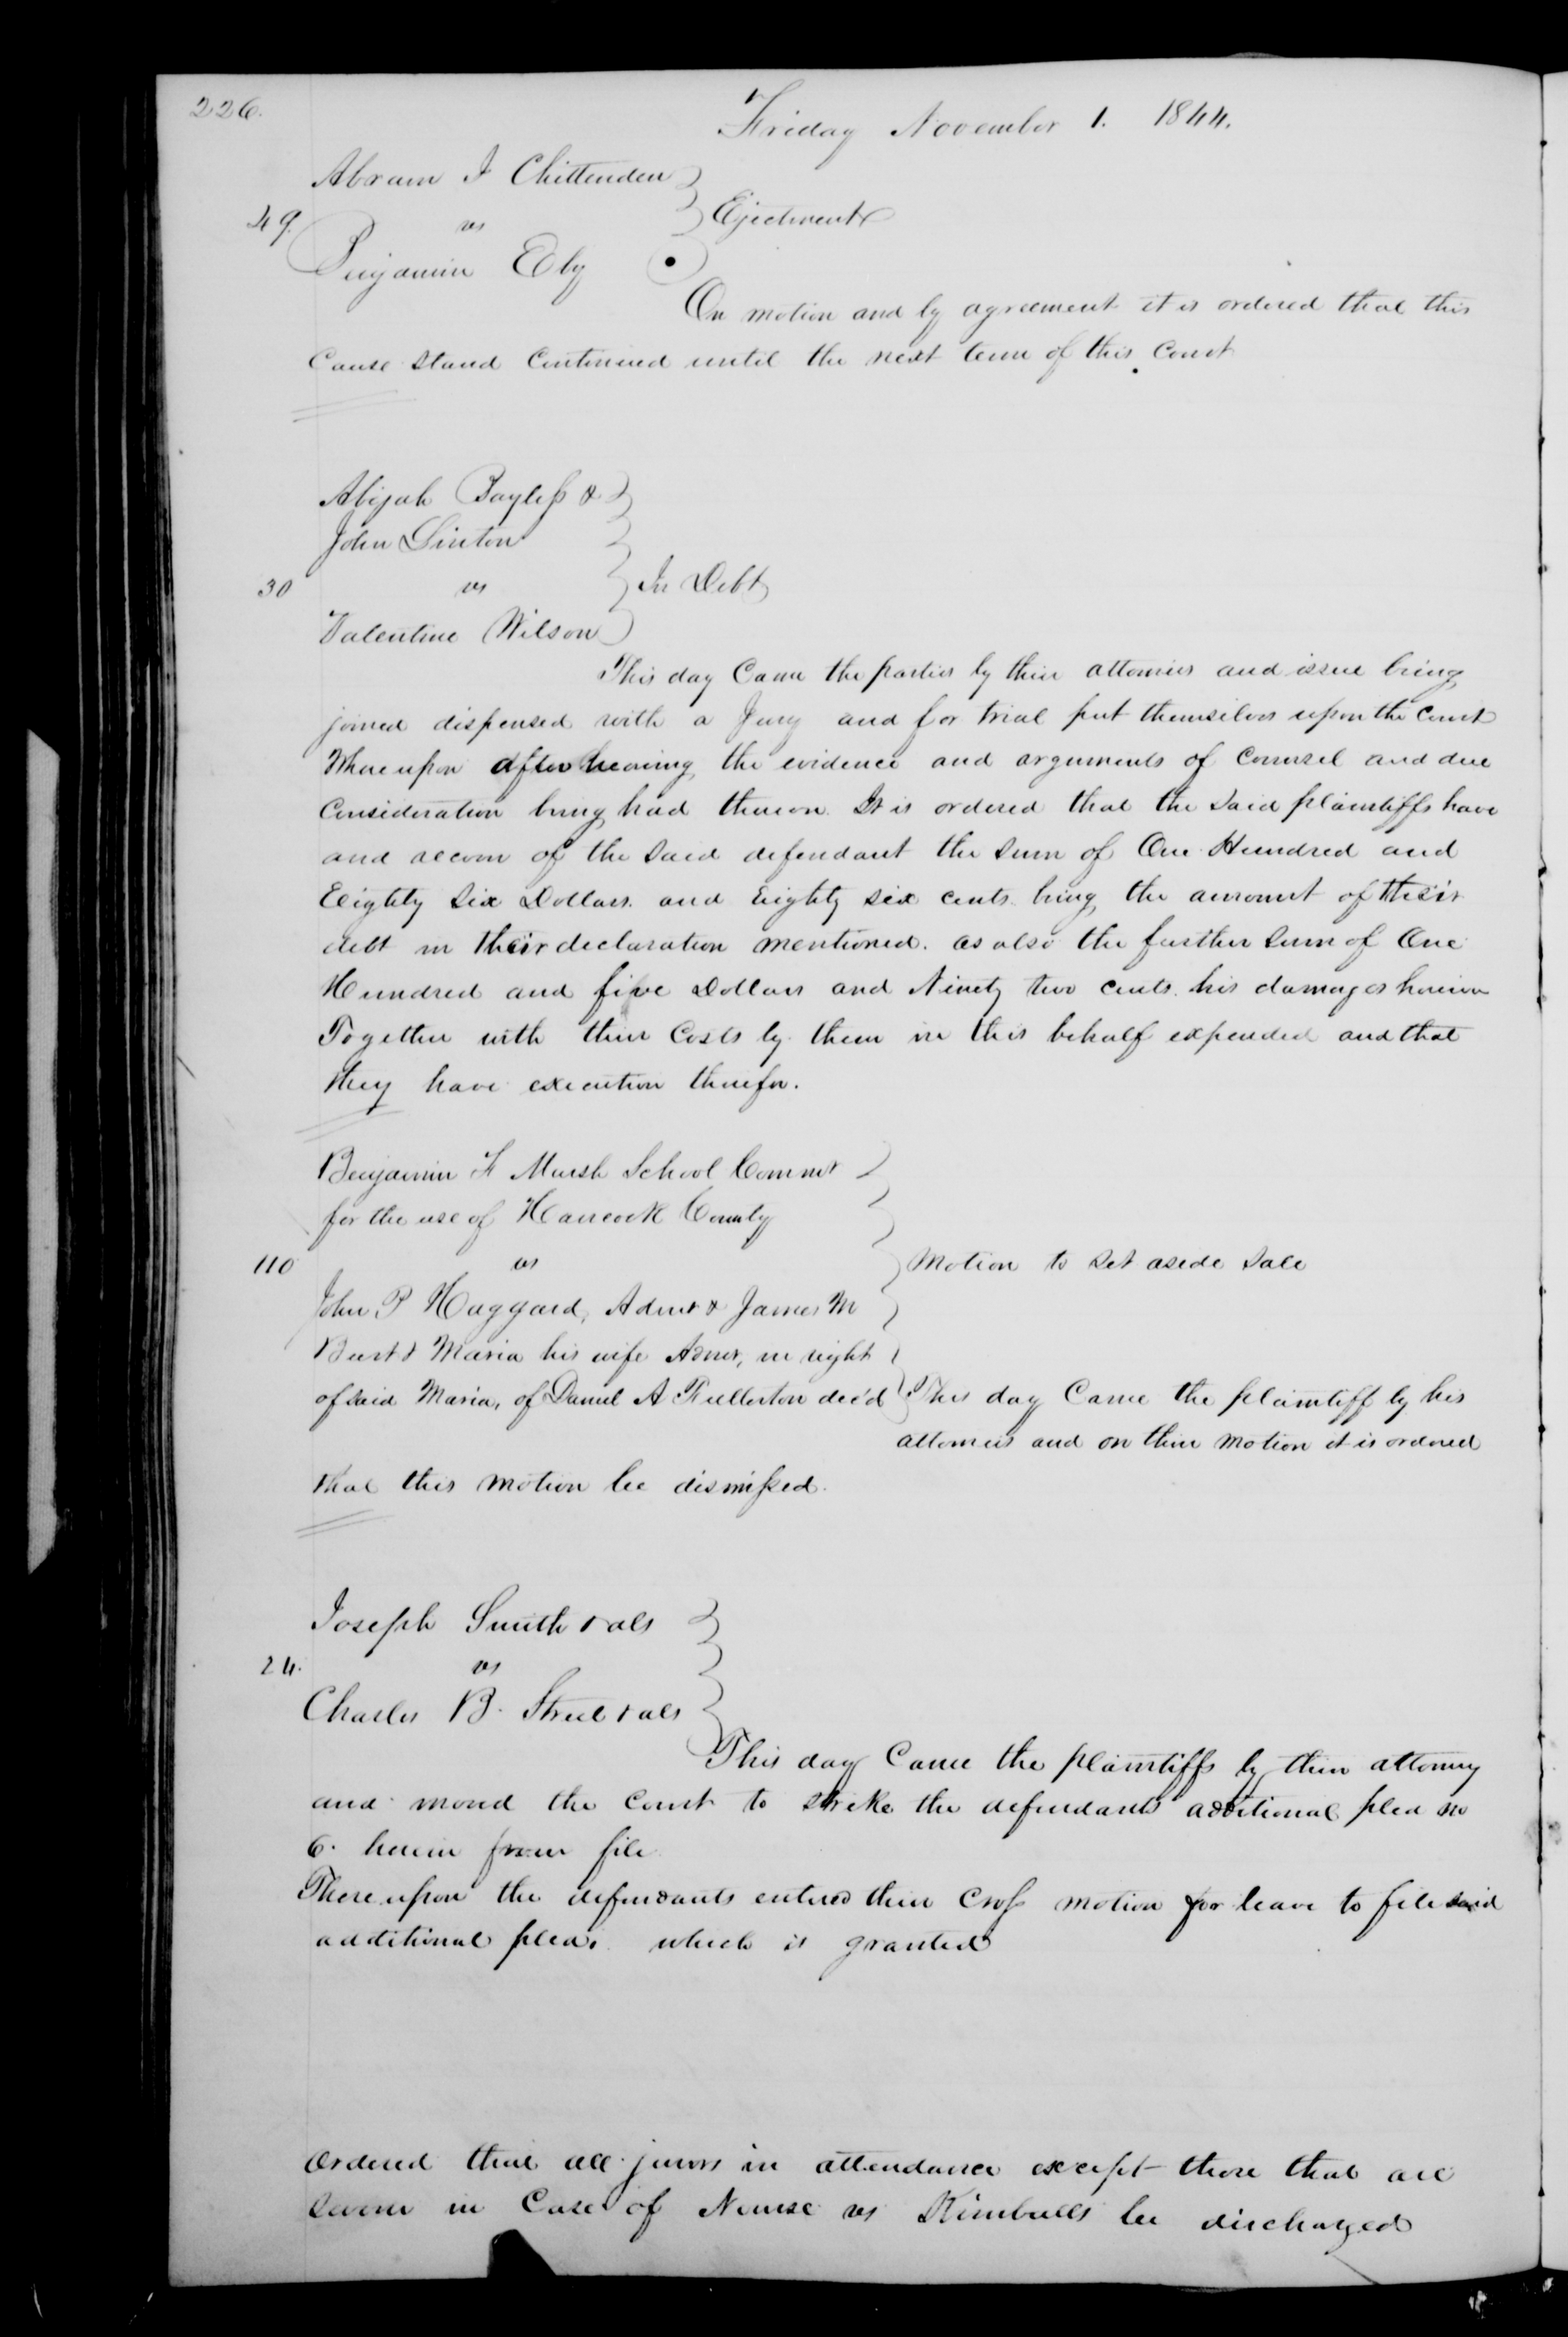 226.
Friday November 1. 1844.
Abram I Chittenden
49. vs Ejectment
Benjamin Eby
On motion and by agreement it is ordered that this
Cause stand Continued until the next term of this Court
Abijah Bayless &
John Linton
30 vs In Debt
Valentine Wilson
This day Came the parties by their attornies and issue being
joined dispensed with a Jury and for trial put themselves upon the Court
Whereupon after hearing the evidence and arguments of Counsel and due
Consideration being had thereon. It is ordered that the said plaintiffs have
and recover of the said defendant the Sum of One Hundred and
Eighty Six Dollars. and Eighty six cents. being the amount of their
debt in their declaration mentioned. as also the further Sum of One
Hundred and five Dollars and Ninety two cents. his damages herein
Together with their Costs by them in this behalf expended and that
they have execution therefor.
Benjamin F Marsh School Commr
for the use of Hancock County
110 vs Motion to set aside sale
John P Haggard, Admr & James M
Burt & Maria his wife Admr, in right
of said Maria, of Daniel A Fullerton dec'd This day Came the plaintiff by his
attornies and on their motion it is ordered
that this motion be dismissed.
Joseph Smith & als
24. vs
Charles B. Street & als
This day Came the plaintiffs by their attorney
and moved the Court to strike the defendants additional plea no
6. herein from file
Thereupon the defendants entered their Cross motion for leave to file said
additional pleas. which is granted
Ordered that all jurors in attendance except those that are
sworn in Case of Nourse vs Kimballs be discharged